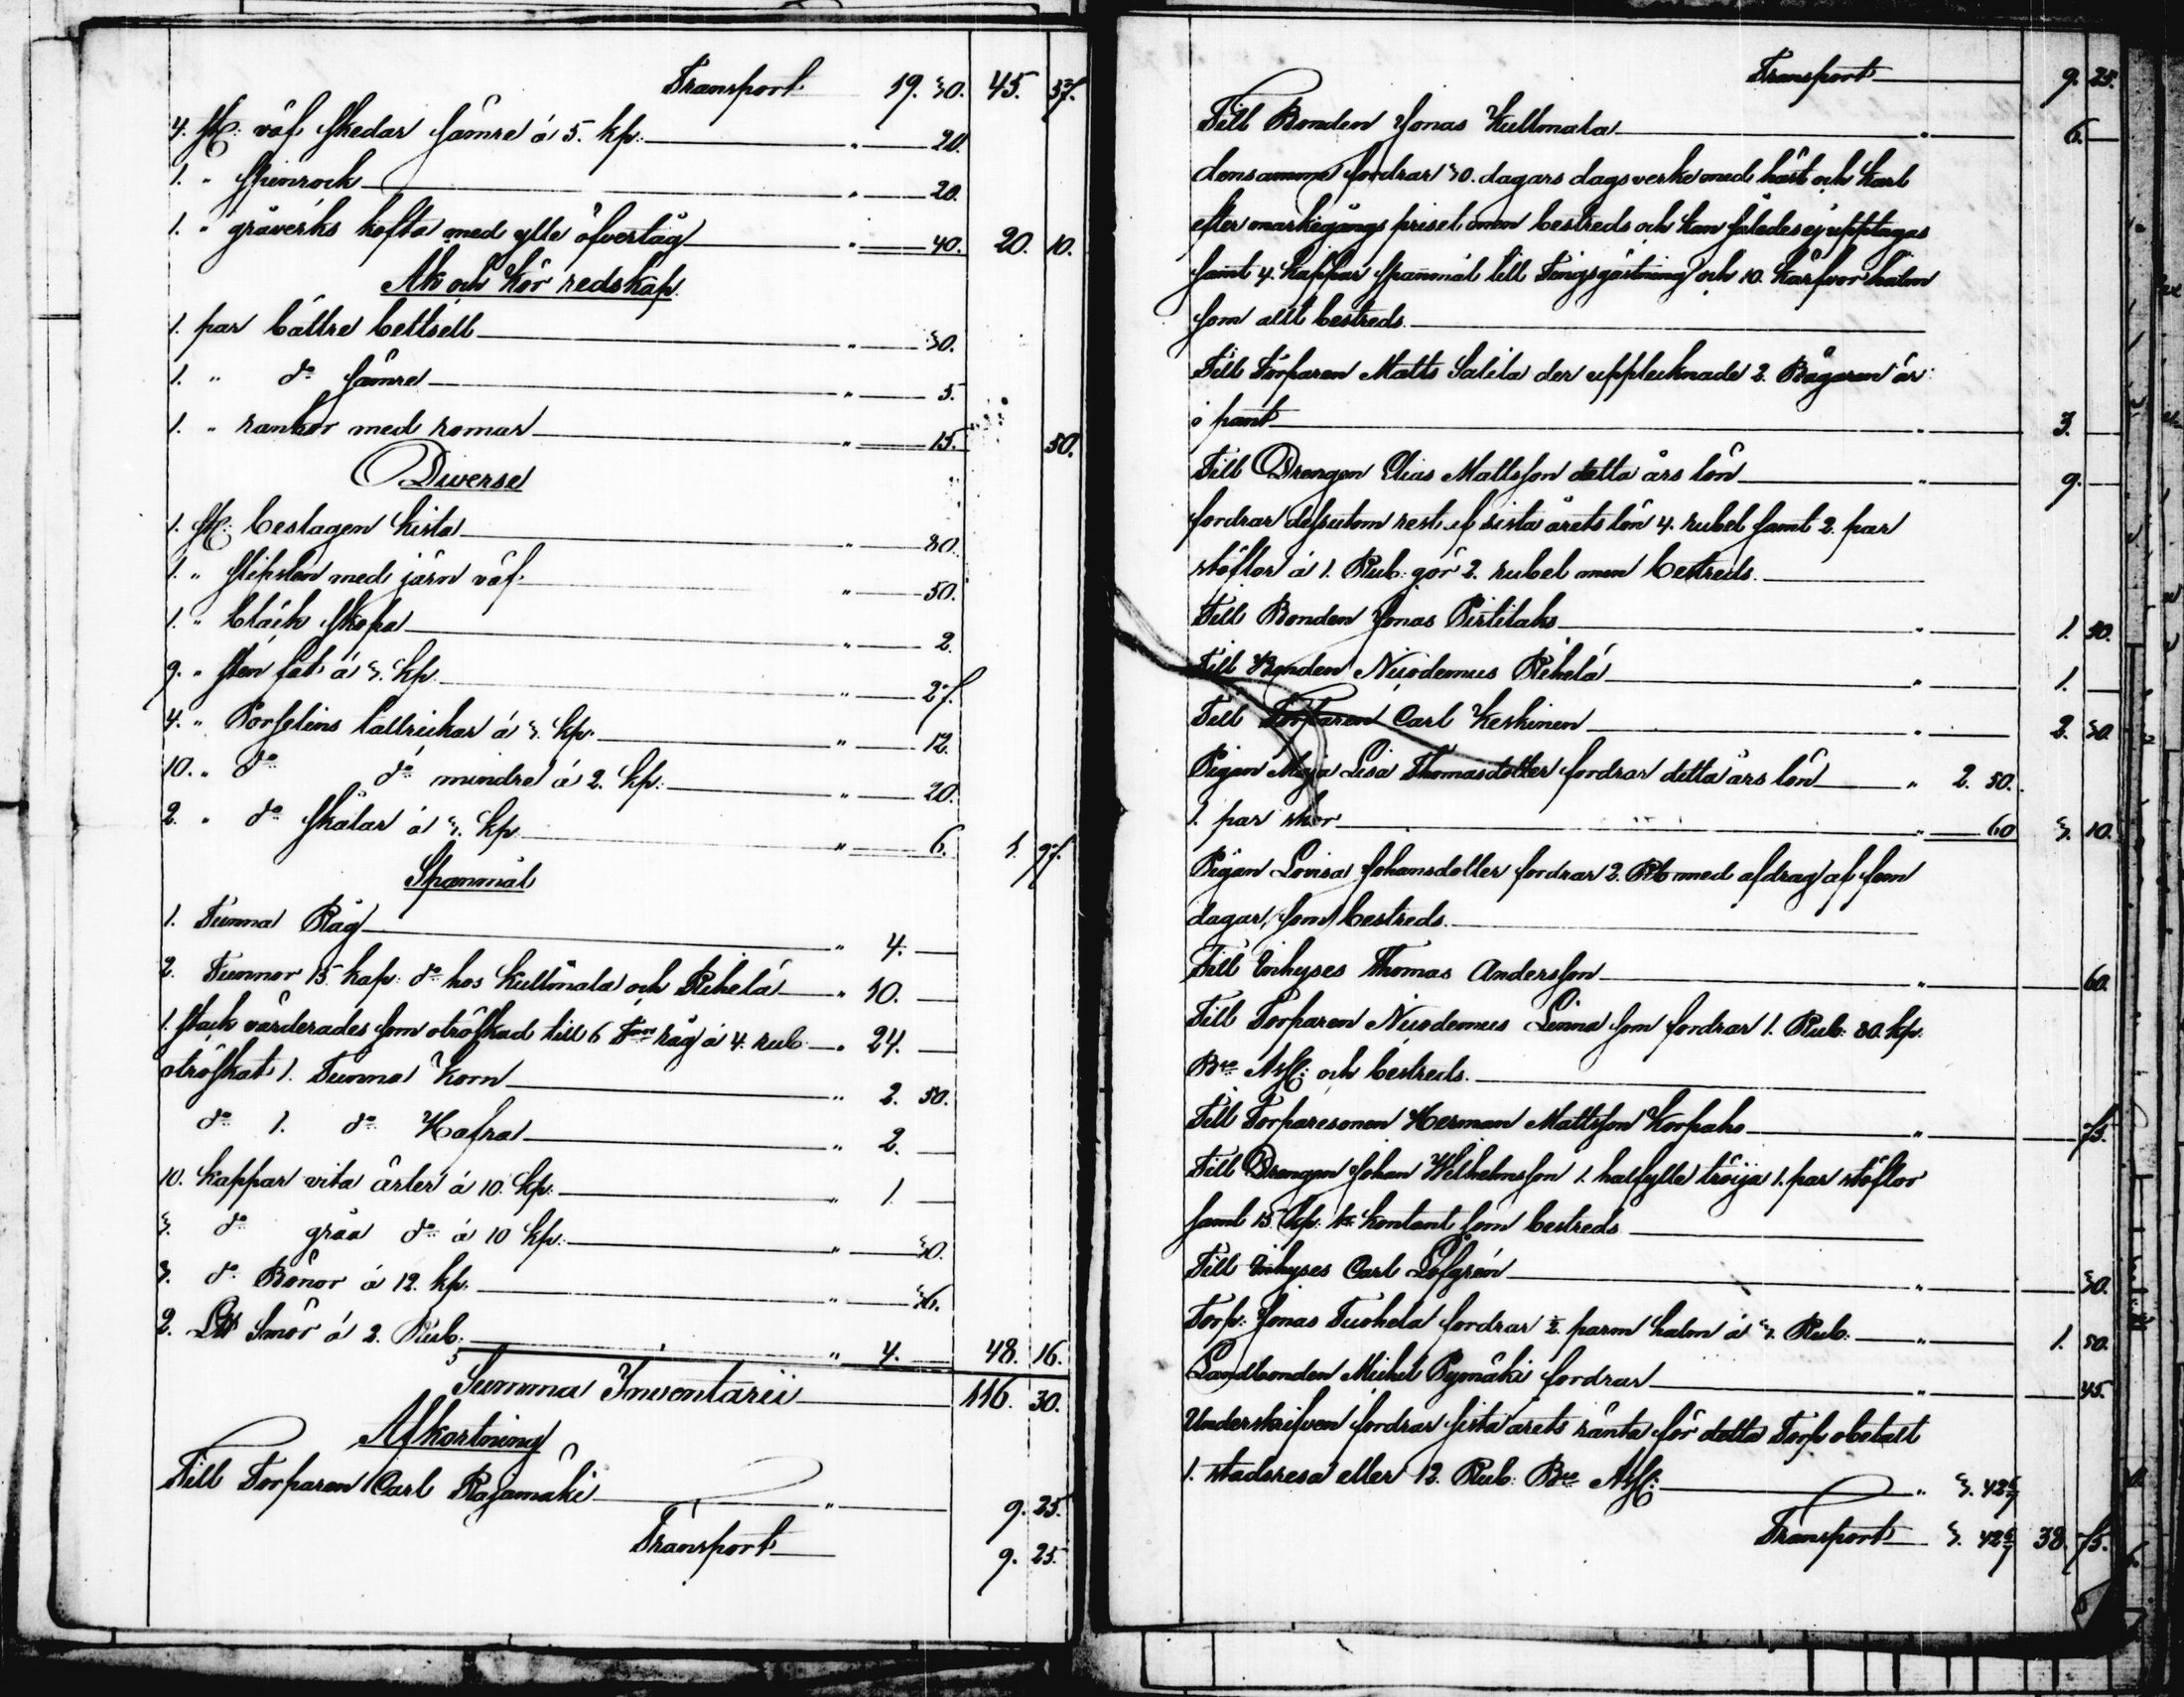 Transport 19. 30. 45. 37.
4. st: väf skedar sämre á 5. kp: " 20.
1. " spinrock " 20.
1. " gråverks kofta med ylle öfvertåg " 40. 20. 10.
Åk och Kör redskap.
1. par bättre bettsell " 30.
1. " do sämre " 5.
1. " rankor med romar " 15. 50.
Diverse
1. st: beslagen kista " 80.
1. " slipsten med järn väf " 50.
1. " bläck skopa " 2.
9. " sten fat á 3. kp. " 27.
4. " Porselins tallrickar á 3. kp. " 12.
10. " do do mindre á 2. kp: " 20.
2. " do skålar á 3. kp. " 6. 1. 97.
Spanmål
1. Tunna Råg " 4. —
2. Tunnor 15 kap: do hos Kullmala och Rihelä " 10. —
1. stack värderades som otröskad till 6 Tnr råg á 4. rub " 24. —
otröskat 1. Tunna Korn " 2. 50.
do 1. do Hafra " 2. —
10. kappar vita ärter á 10. kp: " 1. —
3. do gråa do á 10 kp: " 30.
3. do Bönor á 12. kp: " 36.
2. L℔ Smör á 2. Rub: " 4. — 48. 16.
Summa Inventarii 116. 30.
Afkortning
Till Torparen Carl Rajamäki " 9. 25.
Transport 9. 25.
Transport 9. 25.
Till Bonden Jonas Kullmala " 6. —
densamma fordrar 30. dagars dagsverke med häst och karl
efter markegångs priset men bestreds och kan således ej upptagas
samt 4. kappar spanmål till Tingsgästning och 10. kärfvor halm
som allt bestreds.
Till Torparen Matts Salila der upptecknade 2. Bägaren är
i pant " 3. —
Till Drengen Elias Mattsson detta års lön " 9. —
fordrar dessutom rest. af sista årets lön 4. rubel samt 2. par
stöflor á 1. Rub: gör 2. rubel men bestreds.
Till Bonden Jonas Pirtilaks " 1. 50.
Till Bonden Nicodemus Rihelä " 1. —
Till Torparen Carl Keskinen " 2. 30.
Pigan Maja Lisa Thomasdotter fordrar detta års lön " 2. 50.
1. par skor " 60 3. 10.
Pigan Lovisa Johansdotter fordrar 2. Rb med afdrag af fem
dagar, som bestreds.
Till Inhyses Thomas Andersson " 60.
Till Torparen Nicodemus Linna som fordrar 1. Rub: 80. kp.
Bco Ass: och bestreds.
Till Torparesonen Herman Mattsson Korpaho " 75.
Till Drengen Johan Wilhelmsson 1. halfylle tröija 1. par stöflor
samt 15 kp: kontant som bestreds
Till Inhyses Carl Löfgrén " 30.
Torp: Jonas Tuohela fordrar ½ parm halm á 3. Rub: " 1. 50.
Landbonden Michel Pyymäki fordrar " 45.
Underskrifven fordrar sista årets ränta för detta Torp obetalt
1. stadsresa eller 12. Rub: Bco Ass: " 3. 42 6/7
Transport 3. 42 6/7 38. 75.